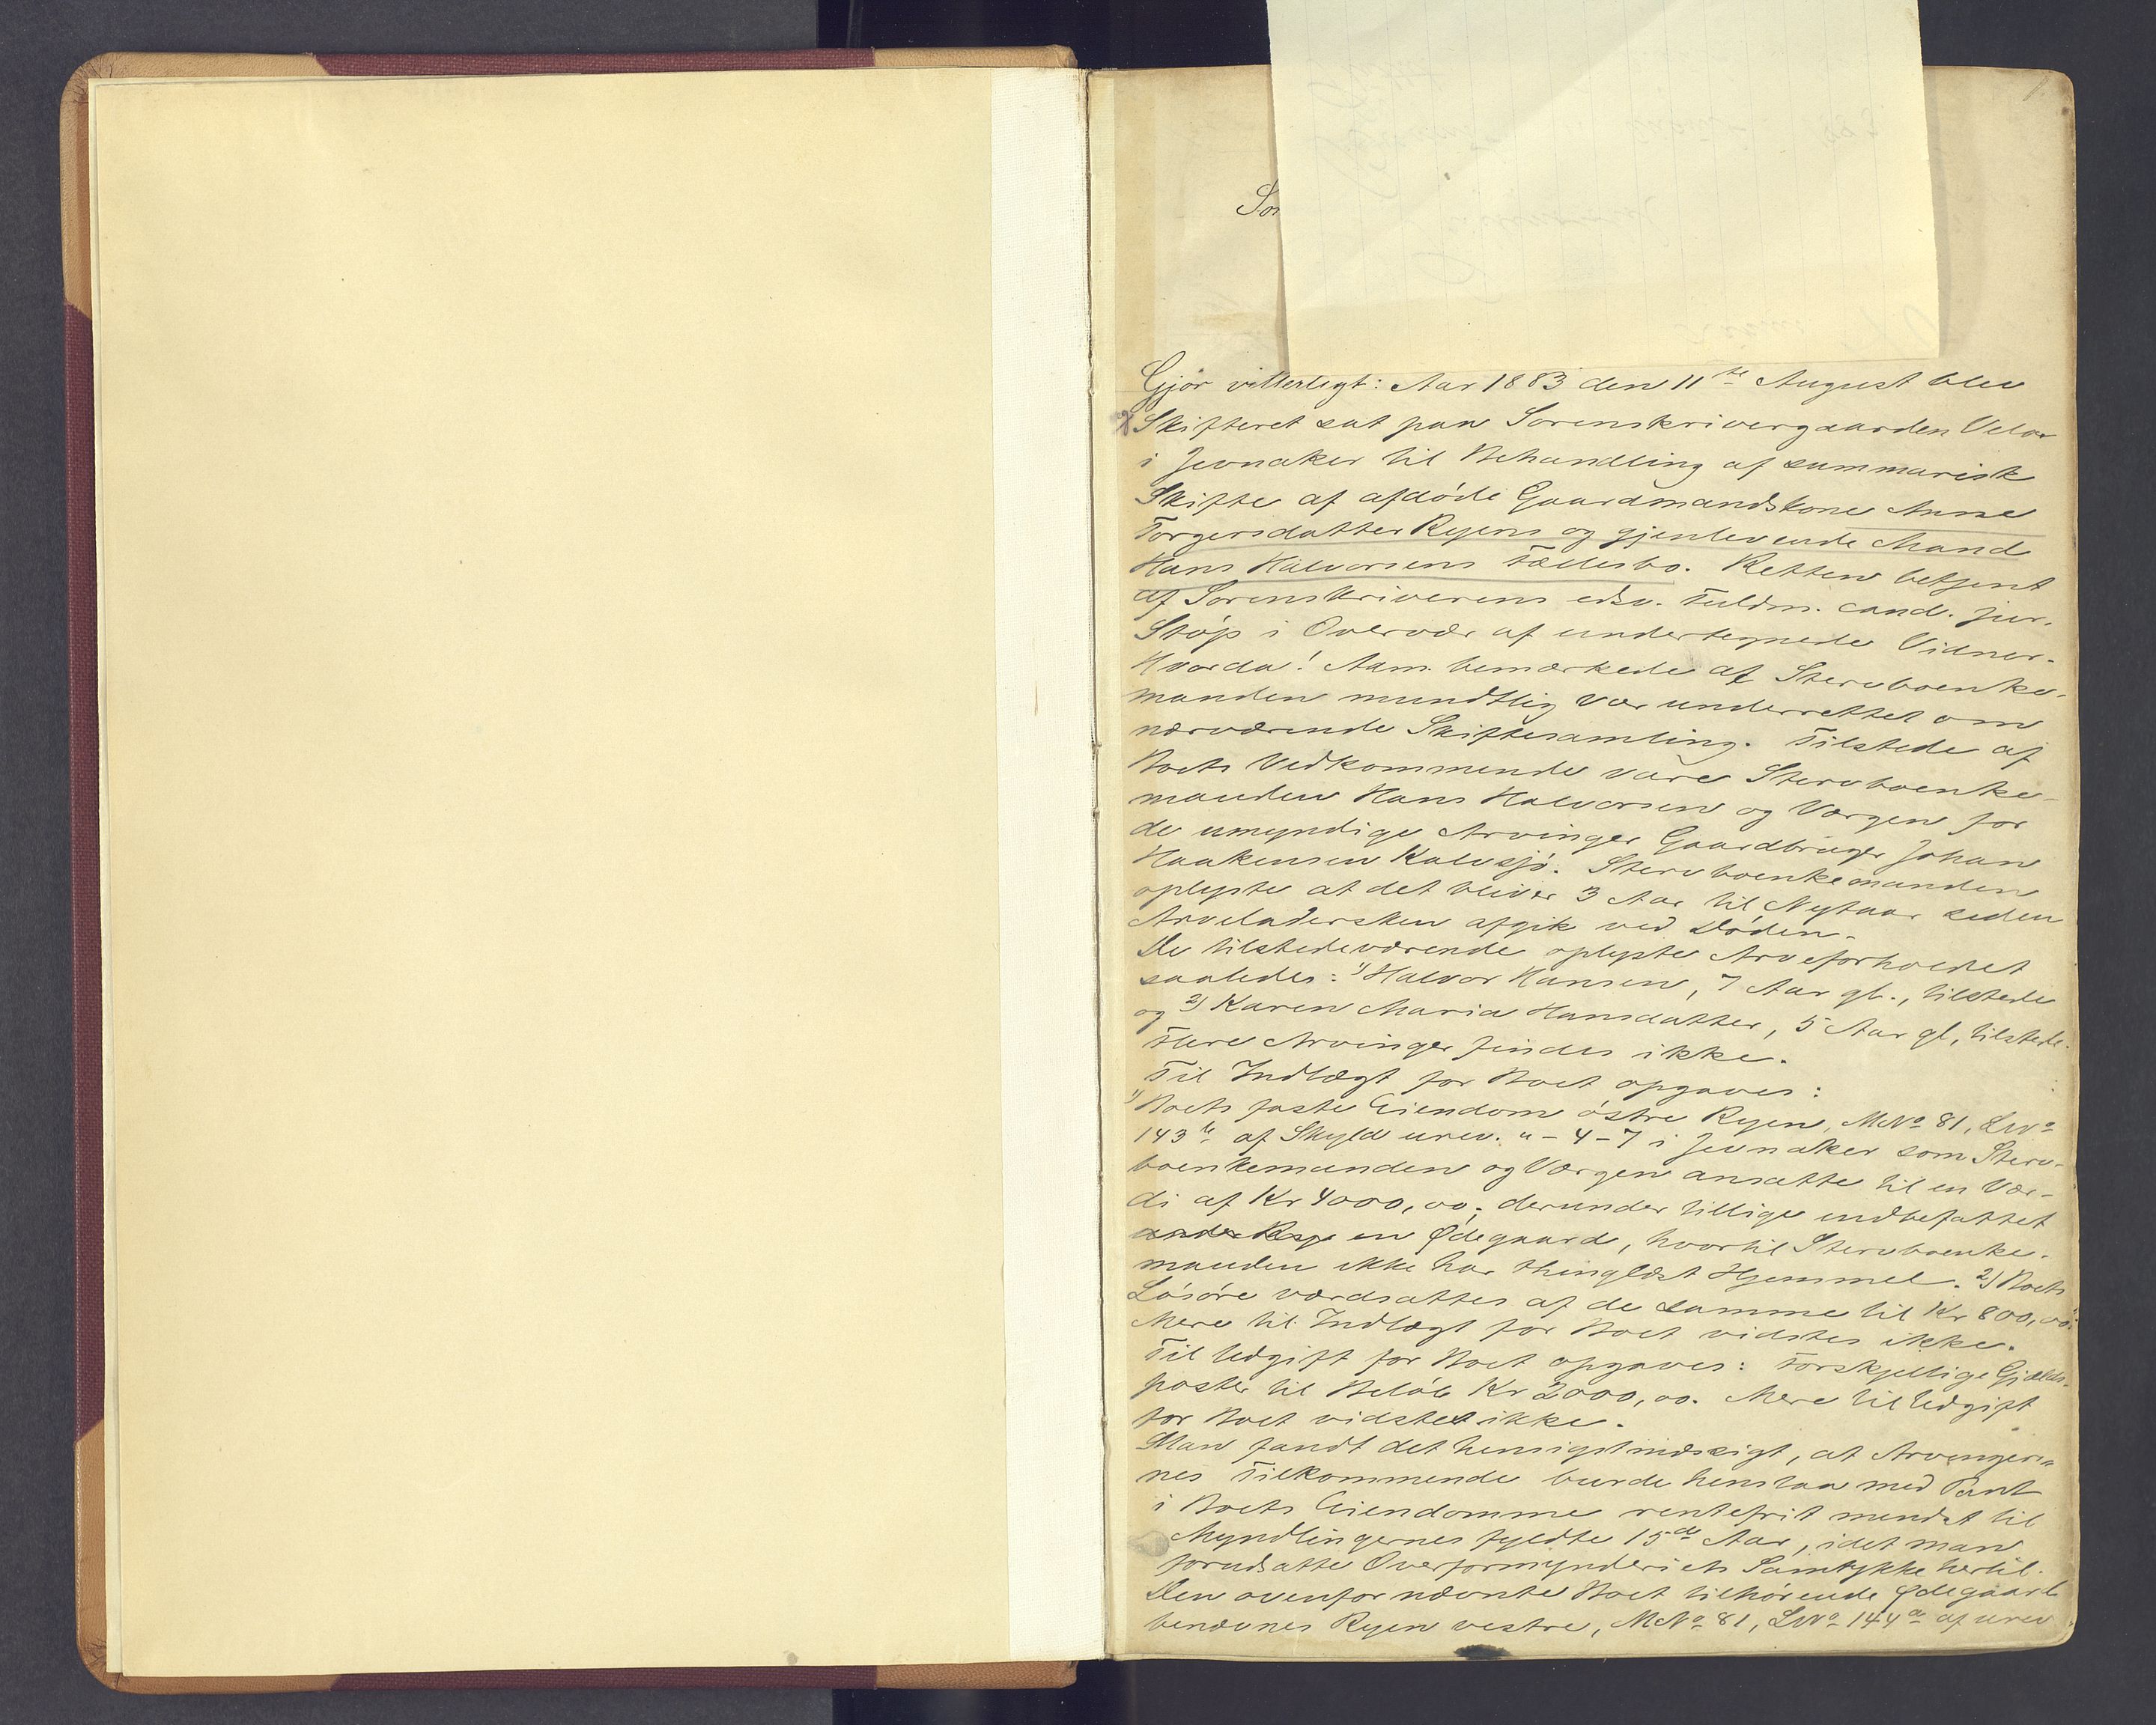 1
Sor
Gjør vitterligt: Aar 1883 den 11te August blev
Skifteret sat paa Sorenskrivergaarden Velo
i Jevnaker til Behandling af summarisk
Skifte af afdøde Gaardmandskone Anne
Torgersdatter Ryens og gjenlevende Mand
Hans Halvorsens Fællesbo. Retten betjent
af Sorenskriverens edsv. Fuldm. cand. jur.
Støp i Overvær af undertegnede Vidner.
Hvorda! Adm. bemærkede at Stervboenke-
manden mundtlig var underrettet om
nærværende Skiftesamling. Tilstede af
Boets Vedkommende vare Stervboenke-
manden Hans Halvorsen og Værgen for
de umyndige Arvinger Gaardbruger Johan
Haakensen Kalvsjø. Stervboenkemanden
oplyste at det bliver 3 Aar til Nytaar siden
Arveladersken afgik ved Døden.
De tilstedeværende oplyste Arveforholdet
saaledes: 1) Halvor Hansen, 7 Aar gl., tilstede
og 2) Karen Maria Hansdatter, 5 Aar gl, tilstede.
Flere Arvinger findes ikke.
Til Indtægt for Boet opgaves:
1) Boets faste Eiendom østre Ryen, MNo 81, LNo
143te af Skyld urev. " - 4 - 7 i Jevnaker som Sterv-
boenkemanden og Værgen ansatte til en Vær-
di af Kr 4000,00; derunder tillige indbefattet
en Ødegaard, hvortil Stervboenke-
manden ikke har thinglæst Hjemmel. 2) Boets
Løsøre værdsattes af de samme til Kr 800,00
Mere til Indtægt for Boet vidstes ikke.
Til Udgift for Boet opgaves: Forskjellige Gjælds-
poster til Beløb Kr 2000,00. Mere til Udgift
for Boet vidstes ikke.
Man fandt det hensigtsmæssigt, at Arvinger-
nes Tilkommende burde henstaa med Pant
i Boets Eiendomme rentefrit mindst til
Myndlingernes fyldte 15de Aar, idet man
forudsatte Overformynderiets Samtykke hertil.
Den ovenfor nævnte Boet tilhørende Ødegaard
benævnes Ryen vestre, MNo 81, LNo 144de af urev